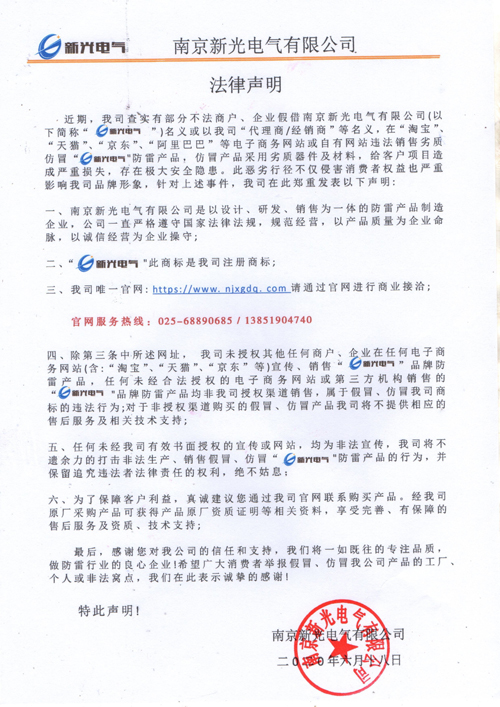 新光电气 南京新光电气有限公司
法律声明
近期,我司查实有部分不法商户、企业假借南京新光电气有限公司(以
下简称“新光电气”)名义或以我司“代理商/经销商”等名义,在“淘宝”、
“天猫”、“京东”、“阿里巴巴”等电子商务网站或自有网站违法销售劣质
仿冒“新光电气”防雷产品,仿冒产品采用劣质器件及材料,给客户项目造
成严重损失,存在极大安全隐患。此恶劣行径不仅侵害消费者权益也严重
影响我司品牌形象,针对上述事件,我司在此郑重发表以下声明:
一、南京新光电气有限公司是以设计、研发、销售为一体的防雷产品制造
企业,公司一直严格遵守国家法律法规,规范经营,以产品质量为企业命
脉,以诚信经营为企业操守;
二、“新光电气”此商标是我司注册商标;
三、我司唯一官网:https://www.njxgdq.com 请通过官网进行商业接洽;
官网服务热线:025-68890685 / 13851904740
四、除第三条中所述网址, 我司未授权其他任何商户、企业在任何电子商
务网站(含:“淘宝”、“天猫”、“京东”等)宣传、销售“新光电气”品牌防
雷产品,任何未经合法授权的电子商务网站或第三方机构销售的
“新光电气”品牌防雷产品均非我司授权渠道销售,属于假冒、仿冒我司商
标的违法行为;对于非授权渠道购买的假冒、仿冒产品我司将不提供相应的
售后服务及相关技术支持;
五、任何未经我司有效书面授权的宣传或网站,均为非法宣传,我司将不
遗余力的打击非法生产、销售假冒、仿冒“新光电气”防雷产品的行为,并
保留追究违法者法律责任的权利,绝不姑息;
六、为了保障客户利益,真诚建议您通过我司官网联系购买产品。经我司
原厂采购产品可获得产品原厂资质证明等相关资料,享受完善、有保障的
售后服务及资质、技术支持;
最后,感谢您对我公司的信任和支持,我们将一如既往的专注品质,
做防雷行业的良心企业!希望广大消费者举报假冒、仿冒我公司产品的工厂、
个人或非法窝点,我们在此表示诚挚的感谢!
特此声明!
南京新光电气有限公司
二〇二〇年六月十八日
南京新光电气有限公司